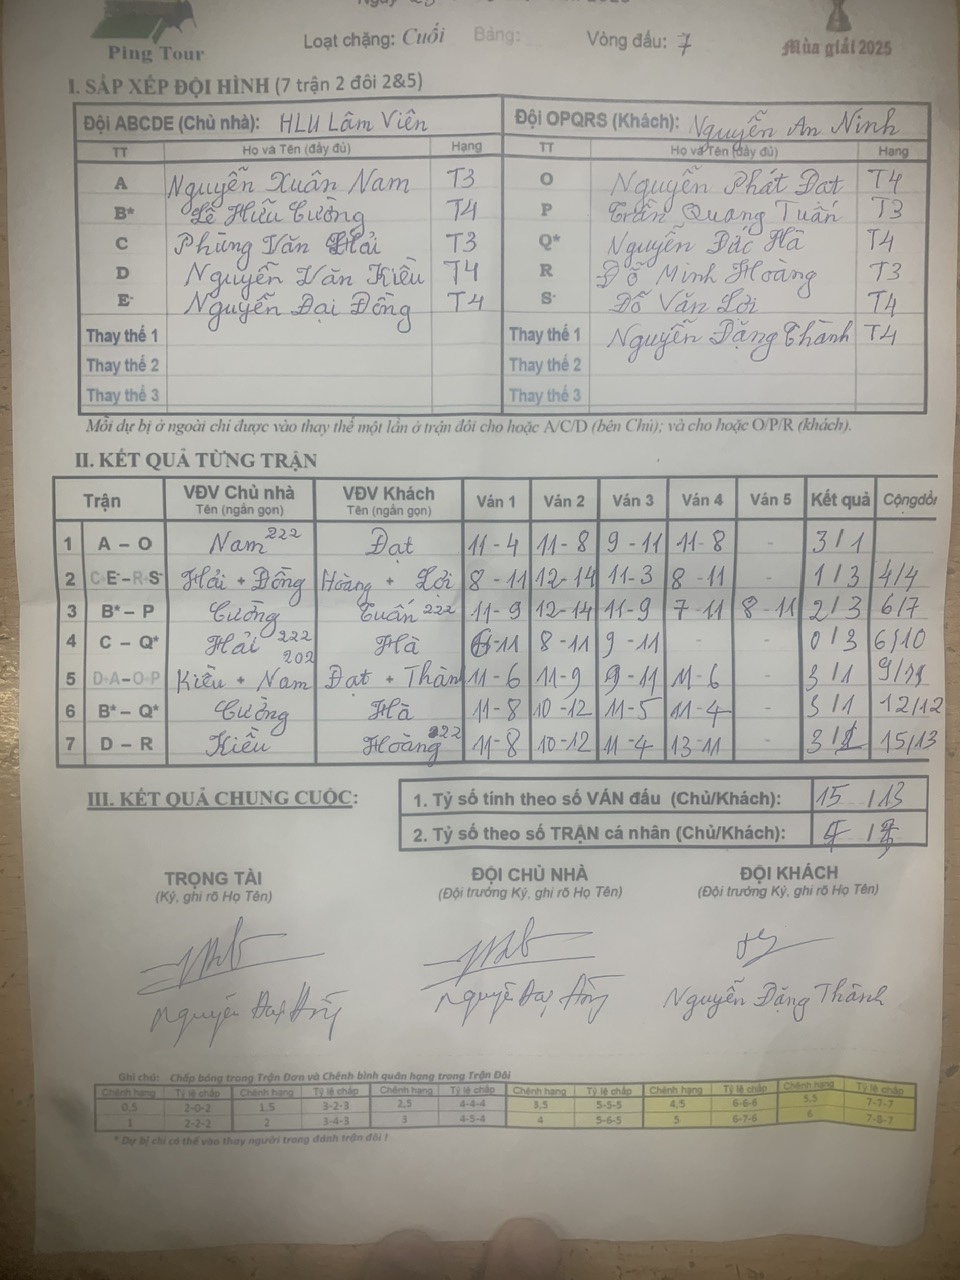 Ping Tour
Loạt chặng: Cuối Bảng: Vòng đấu: 7
Mùa giải 2025
I. SẮP XẾP ĐỘI HÌNH (7 trận 2 đôi 2&5)
Đội ABCDE (Chủ nhà): HLU Lâm Viên Đội OPQRS (Khách): Nguyễn An Ninh
TT Họ và Tên (đầy đủ) Hạng TT Họ và Tên (đầy đủ) Hạng
A Nguyễn Xuân Nam T3 O Nguyễn Phát Đạt T4
B* Lê Hữu Cường T4 P Trần Quang Tuấn T3
C Phùng Văn Hải T3 Q* Nguyễn Đắc Hà T4
D Nguyễn Văn Kiều T4 R Đỗ Minh Hoàng T3
E- Nguyễn Đại Đồng T4 S- Đỗ Văn Lợi T4
Thay thế 1 Thay thế 1 Nguyễn Đặng Thành T4
Thay thế 2 Thay thế 2
Thay thế 3 Thay thế 3
Mỗi dự bị ở ngoài chỉ được vào thay thế một lần ở trận đôi cho hoặc A/C/D (bên Chủ); và cho hoặc O/P/R (khách).
II. KẾT QUẢ TỪNG TRẬN
Trận VĐV Chủ nhà VĐV Khách Ván 1 Ván 2 Ván 3 Ván 4 Ván 5 Kết quả Cộngdồn
Tên (ngắn gọn) Tên (ngắn gọn)
1 A – O Nam 222 Đạt 11-4 11-8 9-11 11-8 - 3/1
2 C-E-–R-S- Hải + Đồng Hoàng + Lợi 8-11 12-14 11-3 8-11 - 1/3 4/4
3 B* – P Cường Tuấn 222 11-9 12-14 11-9 7-11 8-11 2/3 6/7
4 C – Q* Hải 222 Hà 6-11 8-11 9-11 - - 0/3 6/10
202
5 D-A–O-P Kiều + Nam Đạt + Thàn 11-6 11-9 9-11 11-6 - 3/1 9/11
6 B* – Q* Cường Hà 11-8 10-12 11-5 11-4 3/1 12/12
7 D – R Kiều Hoàng 222 11-8 10-12 11-4 13-11 3/1 15/13
III. KẾT QUẢ CHUNG CUỘC:
1. Tỷ số tính theo số VÁN đấu (Chủ/Khách): 15 / 13
2. Tỷ số theo số TRẬN cá nhân (Chủ/Khách): 4 / 3
TRỌNG TÀI ĐỘI CHỦ NHÀ ĐỘI KHÁCH
(Ký, ghi rõ Họ Tên) (Đội trưởng Ký, ghi rõ Họ Tên) (Đội trưởng Ký, ghi rõ Họ Tên)
Nguyễn Đại Đồng Nguyễn Đại Đồng Nguyễn Đặng Thành
Ghi chú: Chấp bóng trong Trận Đơn và Chênh bình quân hạng trong Trận Đôi
Chênh hạng Tỷ lệ chấp Chênh hạng Tỷ lệ chấp Chênh hạng Tỷ lệ chấp Chênh hạng Tỷ lệ chấp Chênh hạng Tỷ lệ chấp Chênh hạng Tỷ lệ chấp
0,5 2-0-2 1,5 3-2-3 2,5 4-4-4 3,5 5-5-5 4,5 6-6-6 5,5 7-7-7
1 2-2-2 2 3-4-3 3 4-5-4 4 5-6-5 5 6-7-6 6 7-8-7
* Dự bị chỉ có thể vào thay người trong đánh trận đôi !